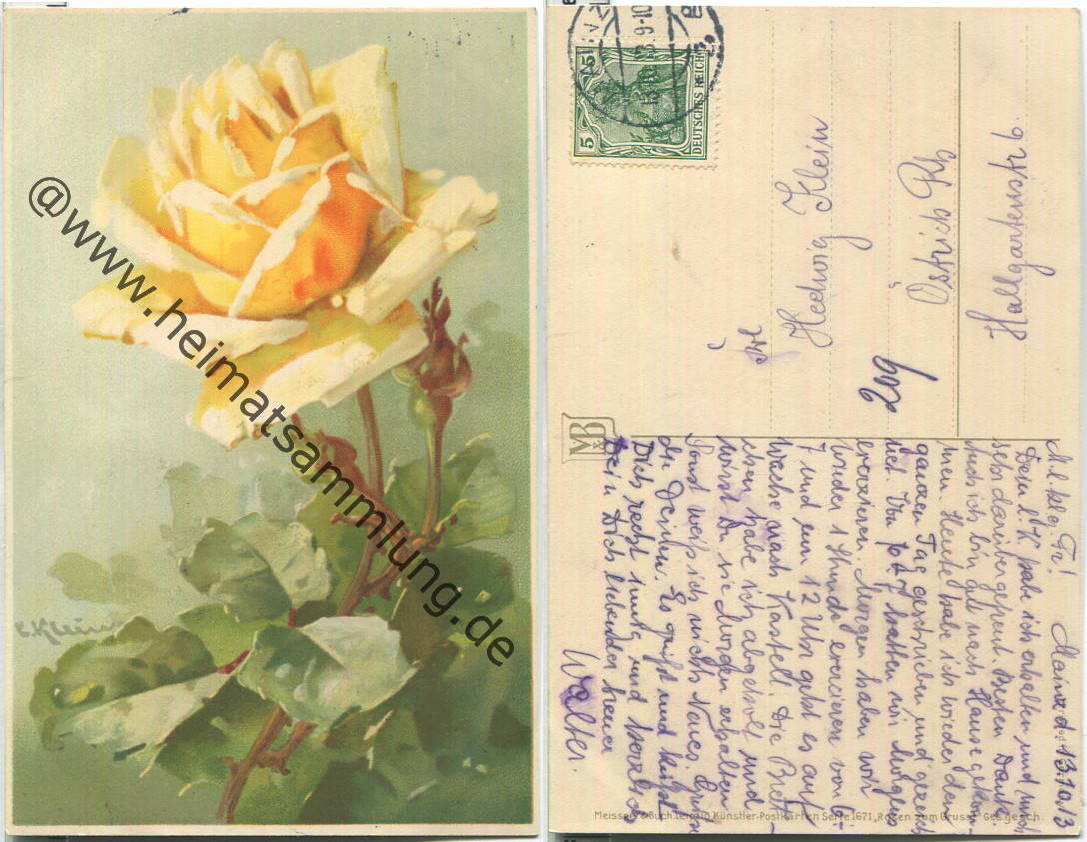 @www.heimatsammlung.de
C. Klein
5 5
DEUTSCHES REICH
13 9-10
Frl.
Hedwig Klein
Östrich Rh
Hallgartenstr 6.
209
M&B
Mainz d. 13.10.13
Dein l. K habe ich erhalten und mich
sehr darüber gefreut. Besten Dank.
Auch ich bin gut nach Hause gekom-
men. Heute habe ich wieder den
ganzen Tag geschrieben und gezeich
net. Von
exerzieren. Morgen haben wir
wieder 1 Stunde exerzieren von 6-
7 und um 12 Uhr geht es auf
Wache nach Kastell. Die
eben habe ich abgeholt und
wirst Du sie morgen erhalten
Sonst weiß ich nichts Neues. Grüße
die Deinen. Es grüßt und küßt
Dich recht innig und herzlich
Dein Dich liebender treuer
Walter.
Meissner & Buch, Leipzig Künstler-Postkarten Serie 1671 „Rosen zum Gruss" Ges. gesch.